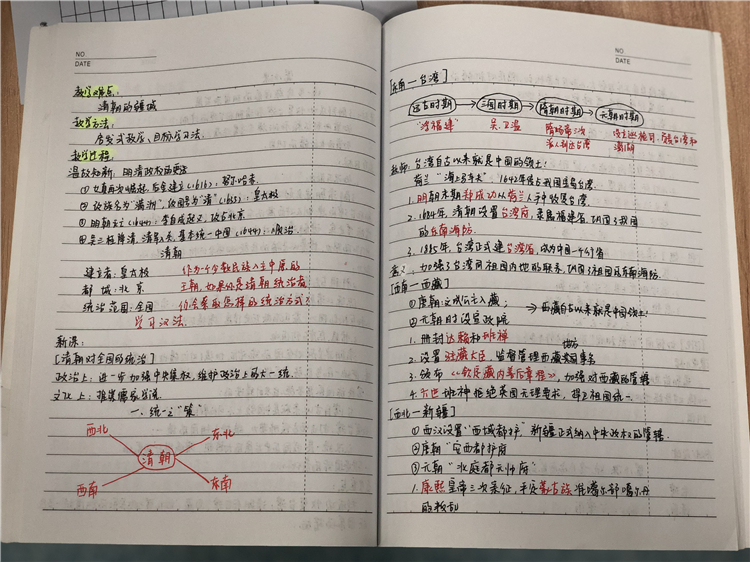 NO.
DATE
教学难点:
清朝的疆域
教学方法:
启发式教学、目标学习法.
教学过程
温故知新: 明清政权的更迭
①女真再次崛起, 后金建立(1616): 努尔哈赤.
②改族名为"满洲", 改国号为"清"(1635): 皇太极
③明朝灭亡(1644): 李自成起义, 攻占北京
④吴三桂降清, 清军入关, 基本统一中国(1644): 顺治
清朝
建立者: 皇太极 作为一个少数民族入主中原的
都 城: 北京 王朝, 如果你是清朝统治者
统治范围: 全国 你会采取怎样的统治方式?
学习汉法.
新课:
[清朝对全国的统治]
政治上: 进一步加强中央集权, 维护政治上的大一统
文化上: 推崇儒家学说
一. 统一之"策"
西北 东北
清朝
西南 东南
NO.
DATE
[东南—台湾]
远古时期 → 三国时期 → 隋朝时期 → 元朝时期
"澎福建" 吴.卫温 隋炀帝三次 设立巡检司, 管辖台湾和
派人到达台湾 澎湖
教师: 台湾自古以来就是中国的领土!
荷兰"海上马车夫", 1642年侵占我国宝岛台湾.
1. 明朝末期郑成功从荷兰人手中收复台湾.
2. 1684年, 清朝设置台湾府, 隶属福建省, 巩固了我国
的东南海防.
3. 1885年, 台湾正式建台湾省, 成为中国一个行省
意义: 加强了台湾同祖国内地的联系, 巩固了祖国的东南海防.
[西南—西藏]
①唐朝: 文成公主入藏;
②元朝时设宣政院 → 西藏自古以来就是中国领土!
1. 册封达赖和班禅
2. 设置驻藏大臣, 监督管理西藏地方事务
3. 颁布《钦定藏内善后章程》, 加强对西藏的管辖
4. 六世班禅拒绝英国无理要求, 捍卫祖国统一.
[西北—新疆]
①西汉设置"西域都护" 新疆正式纳入中央政权的管辖.
②唐朝"安西都护府"
③元朝"北庭都元帅府"
1. 康熙皇帝三次亲征, 平定蒙古族准噶尔部噶尔丹
的叛乱